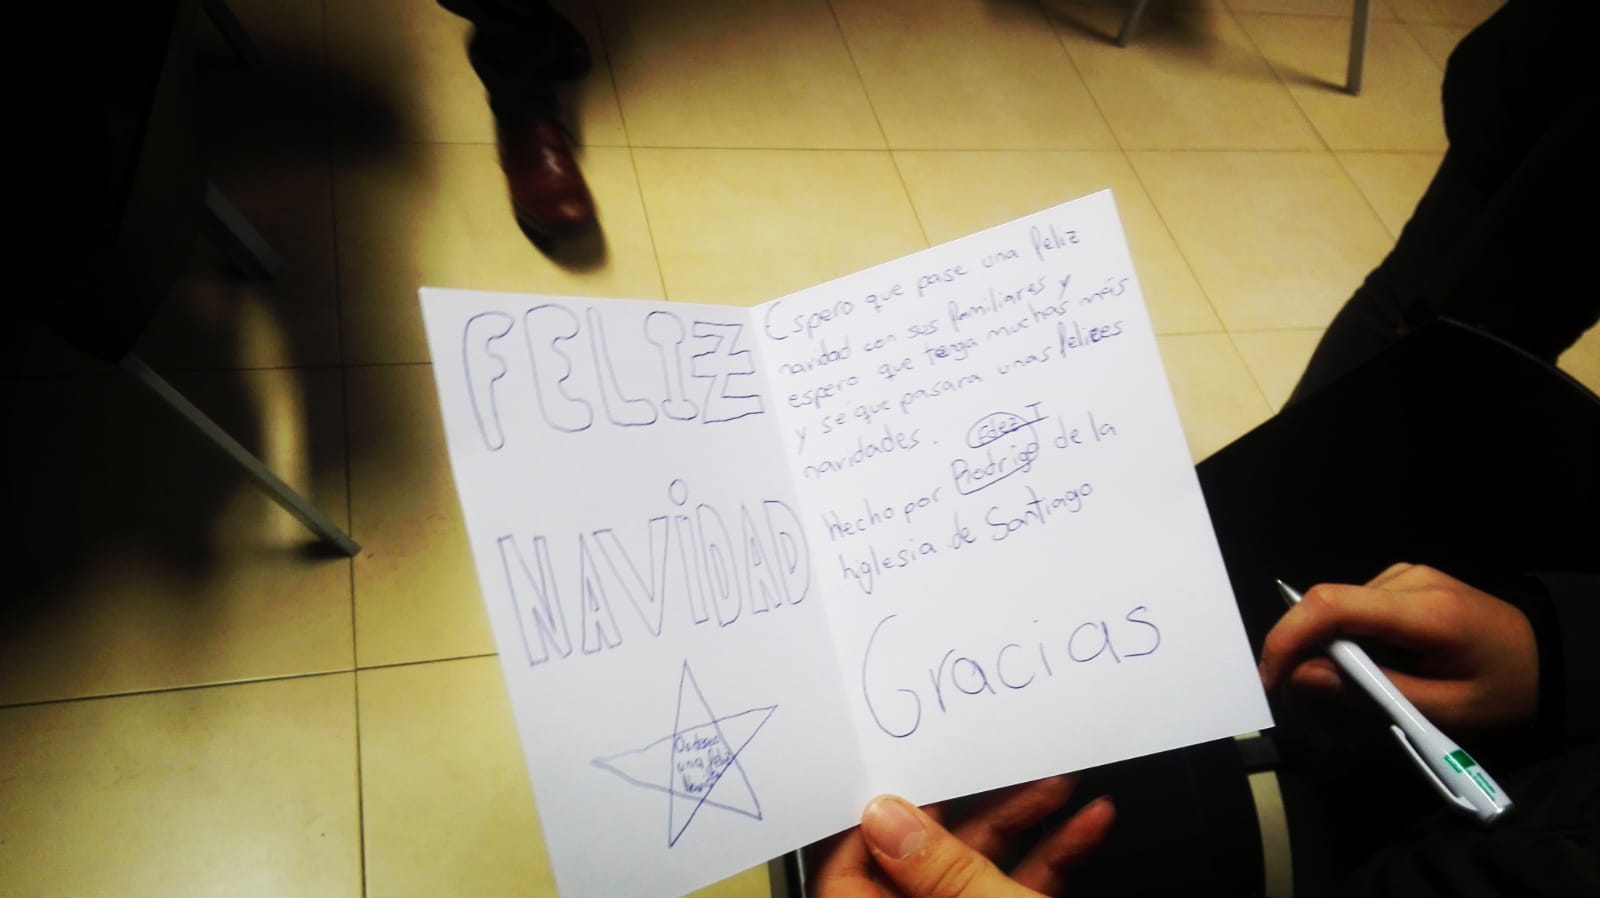 FELIZ
NAVIDAD
Os deseo
una feliz
Navidad
Espero que pase una feliz
navidad con sus familiares y
espero que tenga muchas más
y se que pasara unas felices
navidades.
Hecho por Rodrigo de la
Iglesia de Santiago
Gracias